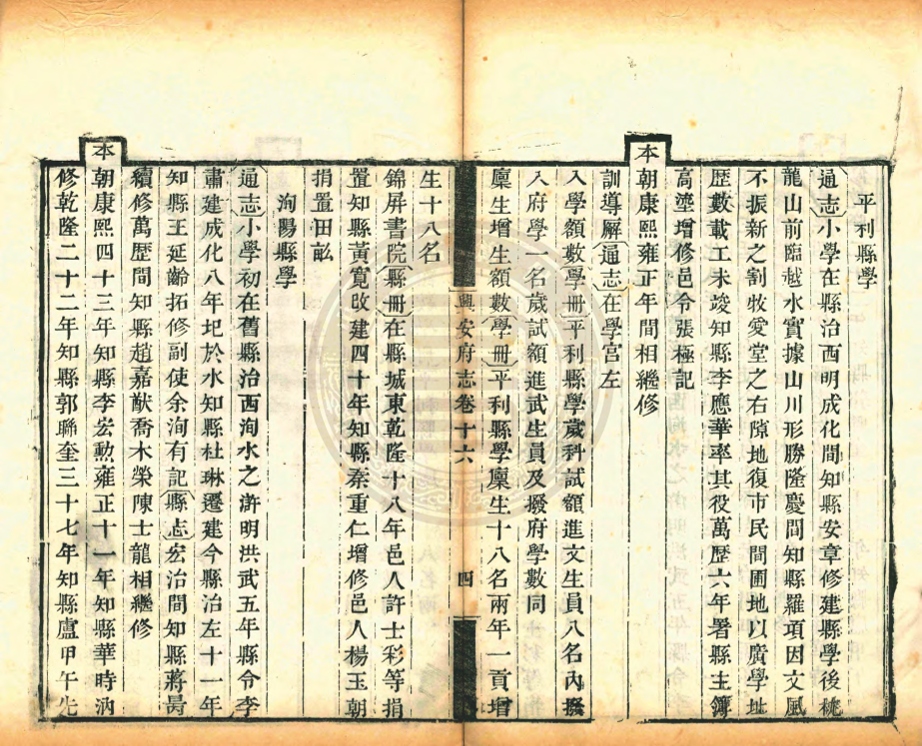 平利縣學
通志小學在縣治西明成化間知縣安章修建縣學後桃
龍山前臨越水實據山川形勝隆慶間知縣羅項因文風
不振新之割牧愛堂之右隙地復市民間圃地以廣學址
歷數載工未竣知縣李應華率其役萬歷六年署縣主簿
高瑬增修邑令張極記
本朝康熙雍正年間相繼修
訓導廨通志在學宮左
入學額數學冊平利縣學歲科試額進文生員八名內撥
入府學一名歲試額進武生員及撥府學數同
廩生增生額數學冊平利縣學廩生十八名兩年一貢增
興安府志卷十六
四
生十八名
錦屏書院縣冊在縣城東乾隆十八年邑人許士彩等捐
置知縣黃寬改建四十年知縣秦重仁增修邑人楊玉朝
捐置田畝
洵陽縣學
通志小學初在舊縣治西洵水之滸明洪武五年縣令李
肅建成化八年圯於水知縣杜琳遷建今縣治左十一年
知縣王延齡拓修副使余洵有記縣志宏治間知縣蔣昺
續修萬歷間知縣趙嘉猷喬木榮陳士龍相繼修
本朝康熙四十三年知縣李宏勳雍正十一年知縣華時汭
修乾隆二十二年知縣郭聯奎三十七年知縣盧甲午先